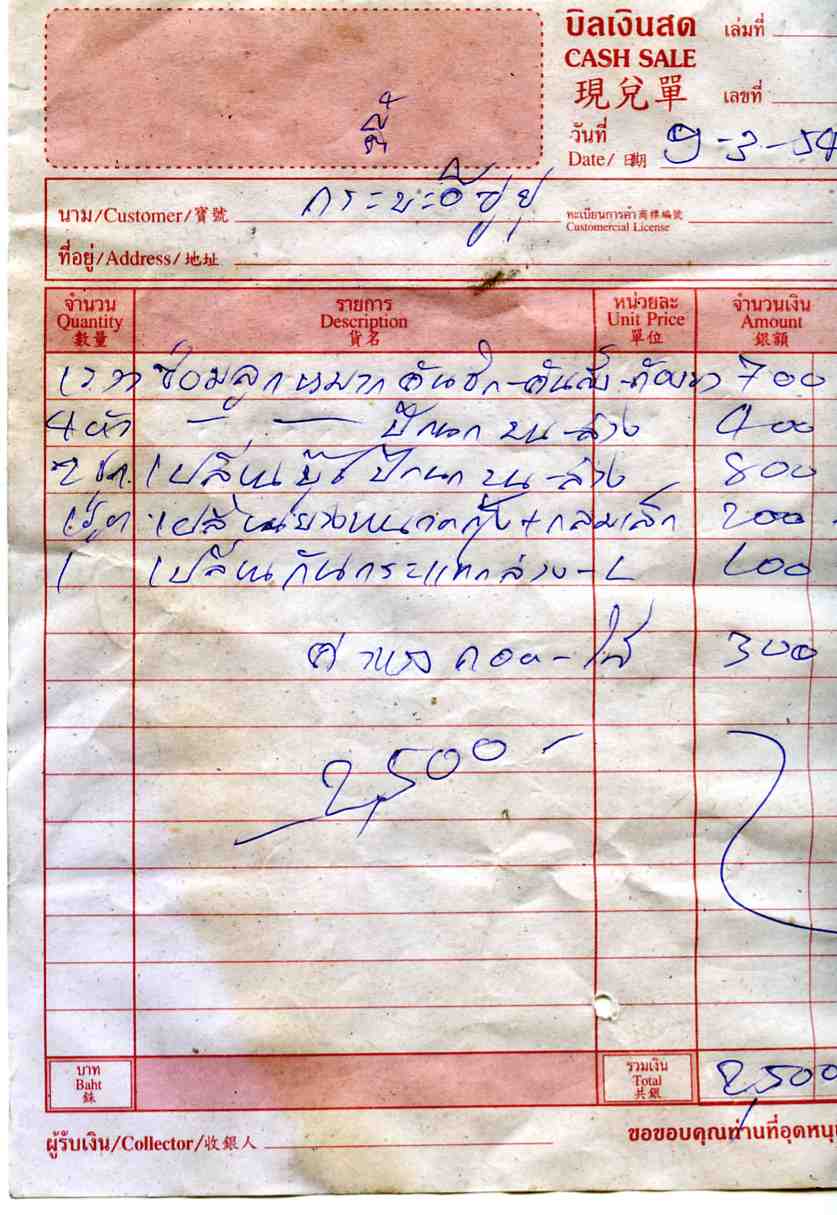 บิลเงินสด เล่มที่
CASH SALE
現兌單 เลขที่
วันที่
Date/日期 9-3-54
นาม/Customer/寶號 กระบะอีซูซุ
ทะเบียนการค้า商標編號
Customercial License
ที่อยู่/Address/地址
จำนวน รายการ หน่วยละ จำนวนเงิน
Quantity Description Unit Price Amount
數量 貨名 單位 銀額
ซ่อมลูกหมากคันชัก-คันส่ง 700
4 ตัว — — ปีกนก บน-ล่าง 400
2 ชุด เปลี่ยนบู๊ชปีกนก บน-ล่าง 800
เปลี่ยนยาง 200
1 เปลี่ยนกันกระแทกล่าง-L 100
ค่าแรงถอด-ใส่ 300
2,500 -
บาท รวมเงิน
Baht Total 2,500
銖 共銀
ผู้รับเงิน/Collector/收銀人
ขอขอบคุณท่านที่อุดหนุ